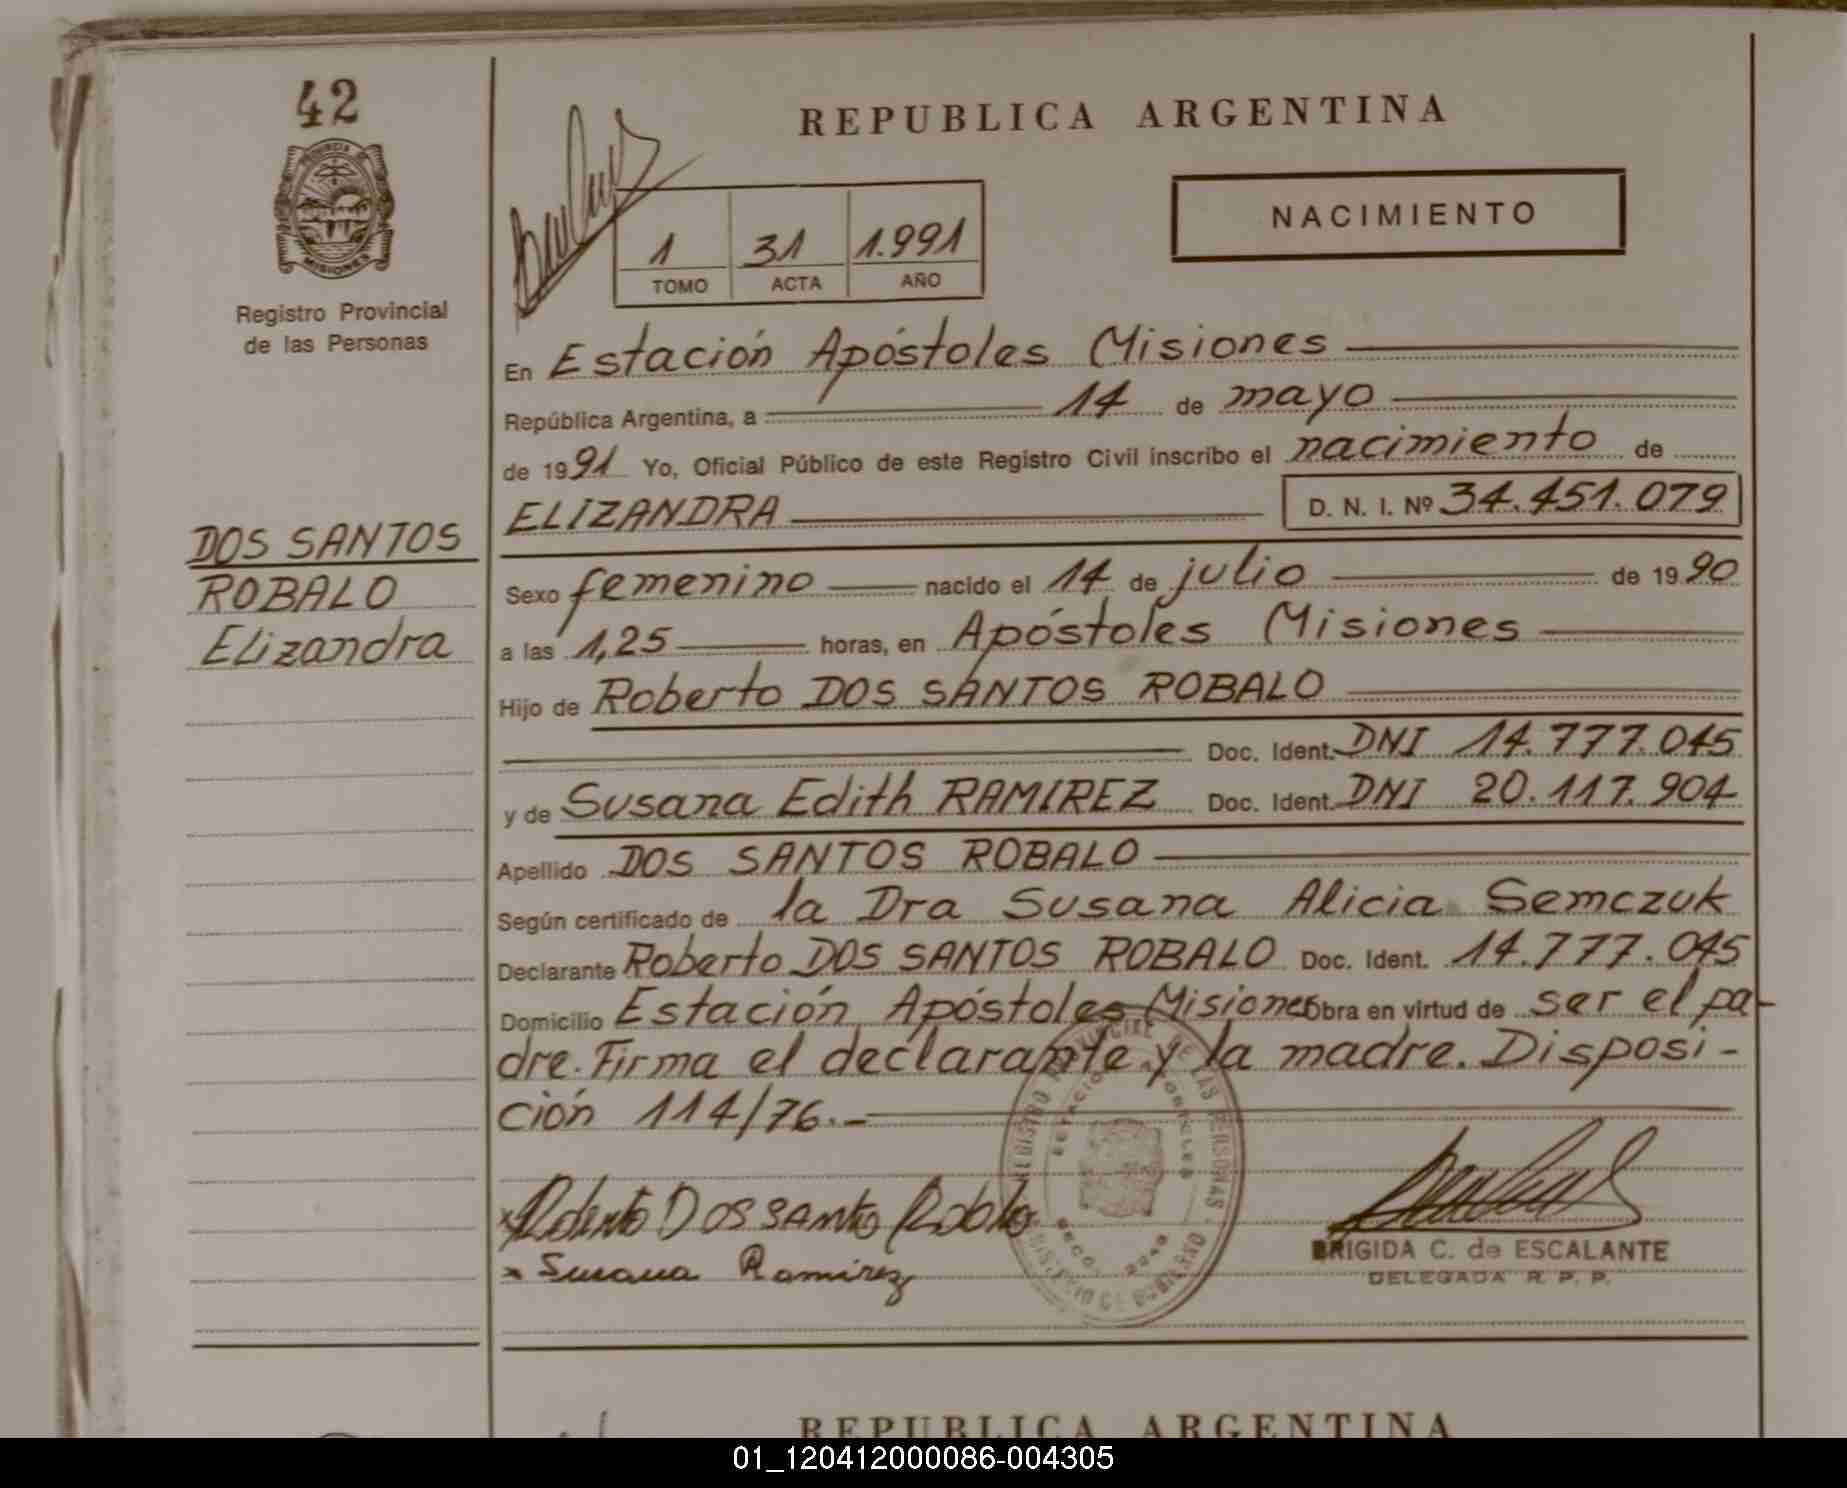 42
PROVINCIA DE
MISIONES
Registro Provincial
de las Personas
DOS SANTOS
ROBALO
Elizandra
REPUBLICA ARGENTINA
NACIMIENTO
1 31 1.991
TOMO ACTA AÑO
En Estación Apóstoles Misiones
República Argentina, a 14 de mayo
de 1991 Yo, Oficial Público de este Registro Civil inscribo el nacimiento de
ELIZANDRA D. N. I. Nº 34.451.079
Sexo femenino nacido el 14 de julio de 1990
a las 1,25 horas, en Apóstoles Misiones
Hijo de Roberto DOS SANTOS ROBALO
Doc. Ident. DNI 14.777.045
y de Susana Edith RAMIREZ Doc. Ident. DNI 20.117.904
Apellido DOS SANTOS ROBALO
Según certificado de la Dra Susana Alicia Semczuk
Declarante Roberto DOS SANTOS ROBALO Doc. Ident. 14.777.045
Domicilio Estación Apóstoles Misiones Obra en virtud de ser el pa-
dre. Firma el declarante y la madre. Disposi-
ción 114/76.-
x Roberto Dos santos Roblo
x Susana Ramirez
BRIGIDA C. de ESCALANTE
DELEGADA R. P. P.
REPUBLICA ARGENTINA
01_120412000086-004305